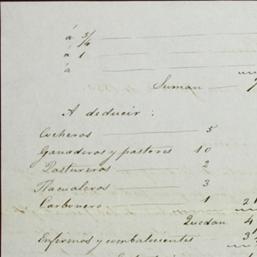 á 3/4
á 1
á
Suman
A deducir:
Cocheros 5
Ganaderos y pastores 10
Pastureros 2
Tlacualeros 3
Carbonero 1 2
Quedan 4
Enfermos y combalecientes 3